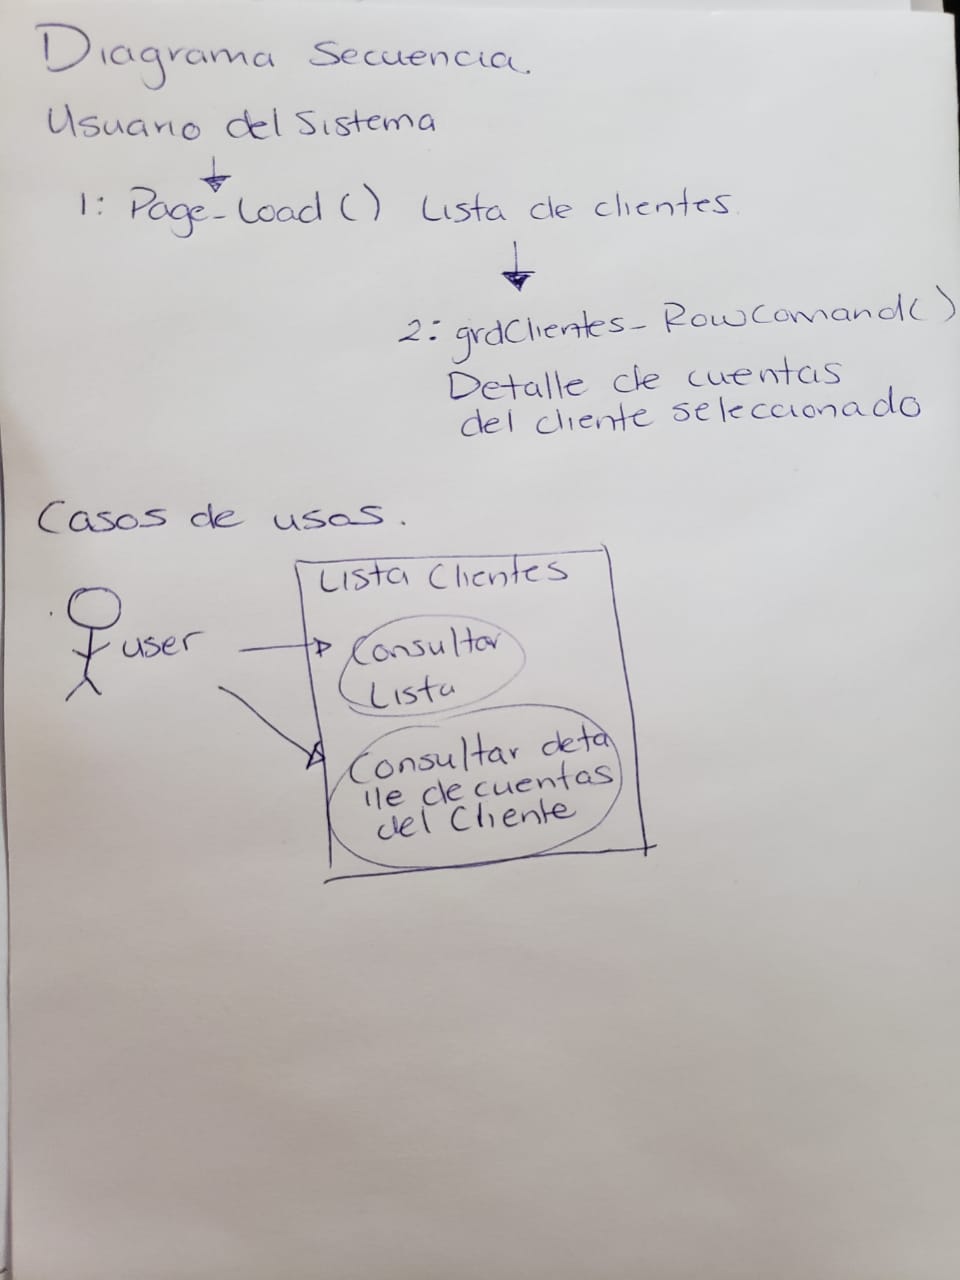 Diagrama Secuencia.
Usuario del Sistema
1: Page_Load () Lista de clientes.
2: grdClientes_RowComand()
Detalle de cuentas
del cliente seleccionado
Casos de usos.
Lista Clientes
user
Consultar
Lista
Consultar deta
lle de cuentas
del Cliente